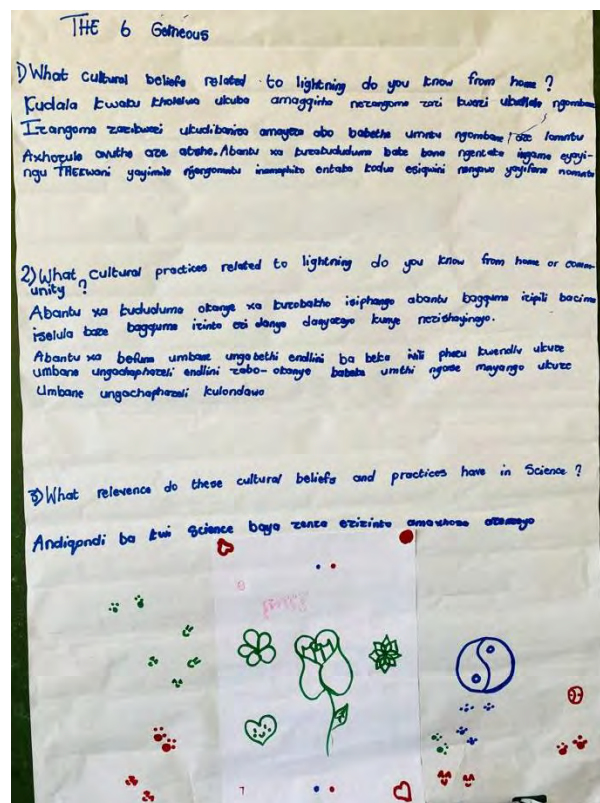 THE 6 Gemeous
1) What cultural beliefs related to lightning do you know from home?
Kudala kwaku kholelwa ukuba amagqirha nezangoma zazi kwazi ukuthatha ngombane
Izangoma zazikwazi ukudibanisa amayeza abo babethe umntu ngombane, aze lomntu
Axhozule avuthe aze atshe. Abantu xa kuzakududuma bate bona ngentaka ingama eyayi-
ngu THEKwani yayimile njengomntu inamaphiko entaka kodwa esiqwini nangawo yayifana nomntu
2) What cultural practices related to lightning do you know from home or comm-
unity?
Abantu xa kududuma okanye xa kuzobakho isiphango abantu bagquma izipili bacima
iselula baze bagqume izinto ezi danya danyazayo kunye nezishayinayo.
Abantu xa befuna umbane ungabethi endlini ba beka phezu kwendlu ukuze
umbane ungachaphazeli endlini zabo-okanye babeka umthi ngase mnyango ukuze
Umbane ungachaphazeli kulondawo
3) What relevence do these cultural beliefs and practices have in Science?
Andiqondi ba kwi science baya zenza ezizinto amaxhosa